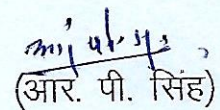 (आर. पी. सिंह)